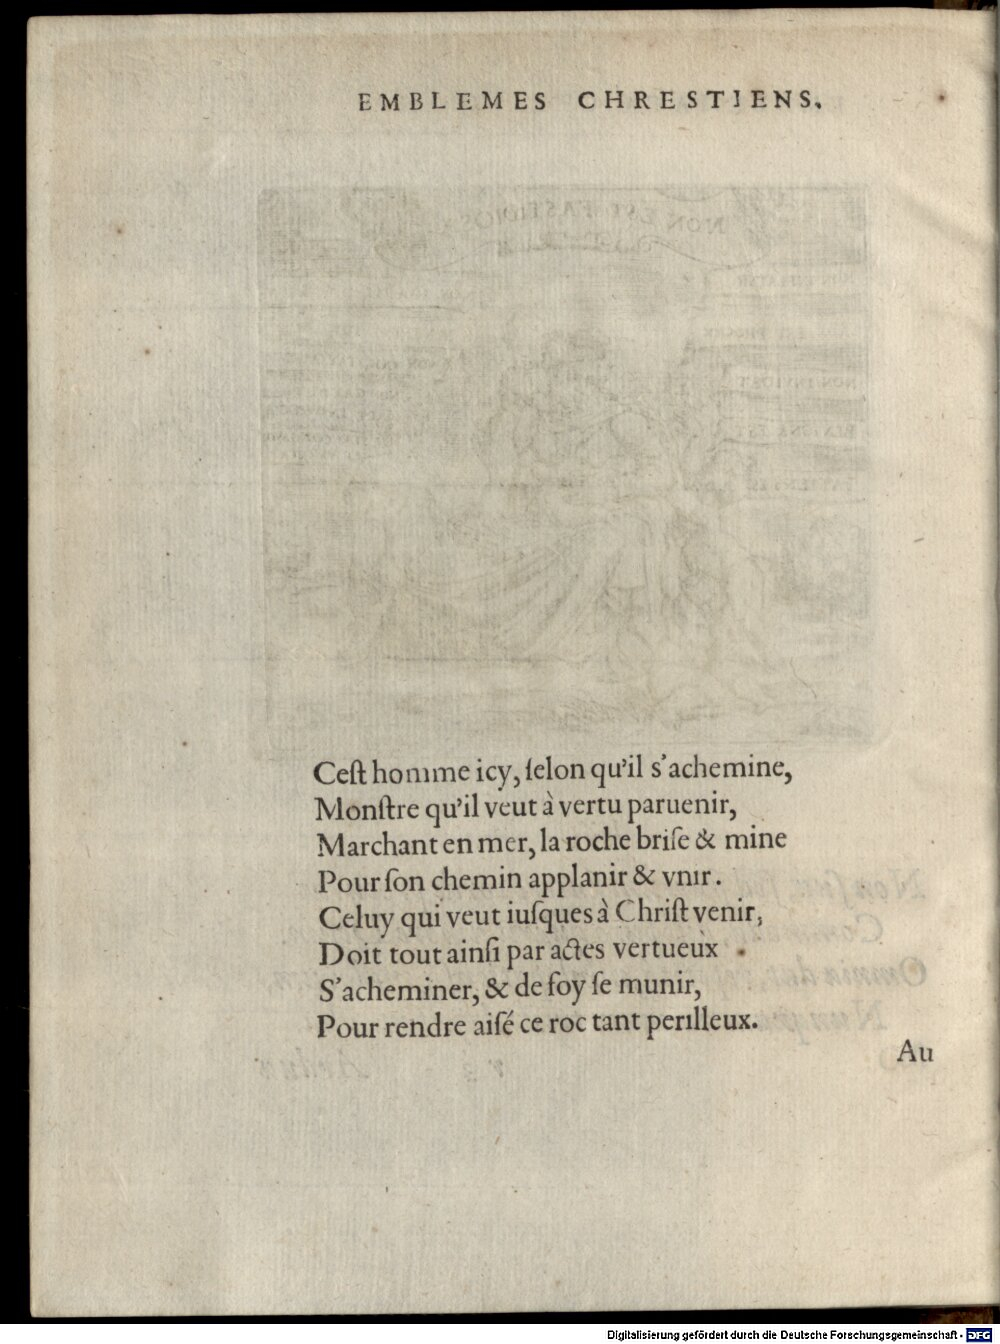 EMBLEMES CHRESTIENS.
NON EST FASTIDIOSA
Ceſt homme icy, ſelon qu'il s'achemine,
Monſtre qu'il veut à vertu paruenir,
Marchant en mer, la roche briſe & mine
Pour ſon chemin applanir & vnir.
Celuy qui veut iuſques à Chriſt venir,
Doit tout ainſi par actes vertueux
S'acheminer, & de foy ſe munir,
Pour rendre aiſé ce roc tant perilleux.
Au
Digitalisierung gefördert durch die Deutsche Forschungsgemeinschaft - DFG